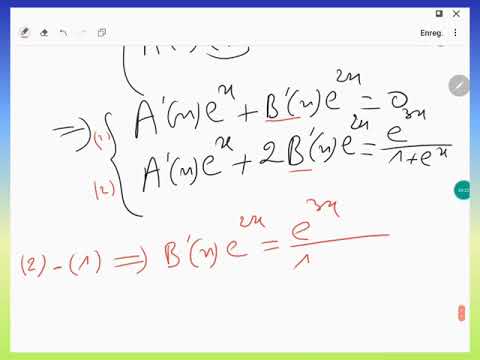 Enreg.
⇒ (1) { A'(x)e^x + B'(x)e^{2x} = 0
(2) A'(x)e^x + 2B'(x)e^{2x} = e^{3x}/(1+e^x)
(2)-(1) ⇒ B'(x)e^{2x} = e^{3x}/1